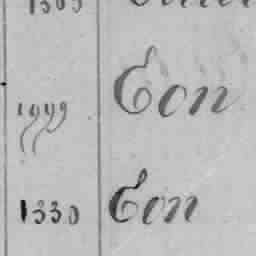 1999 Eon
1330 Eon